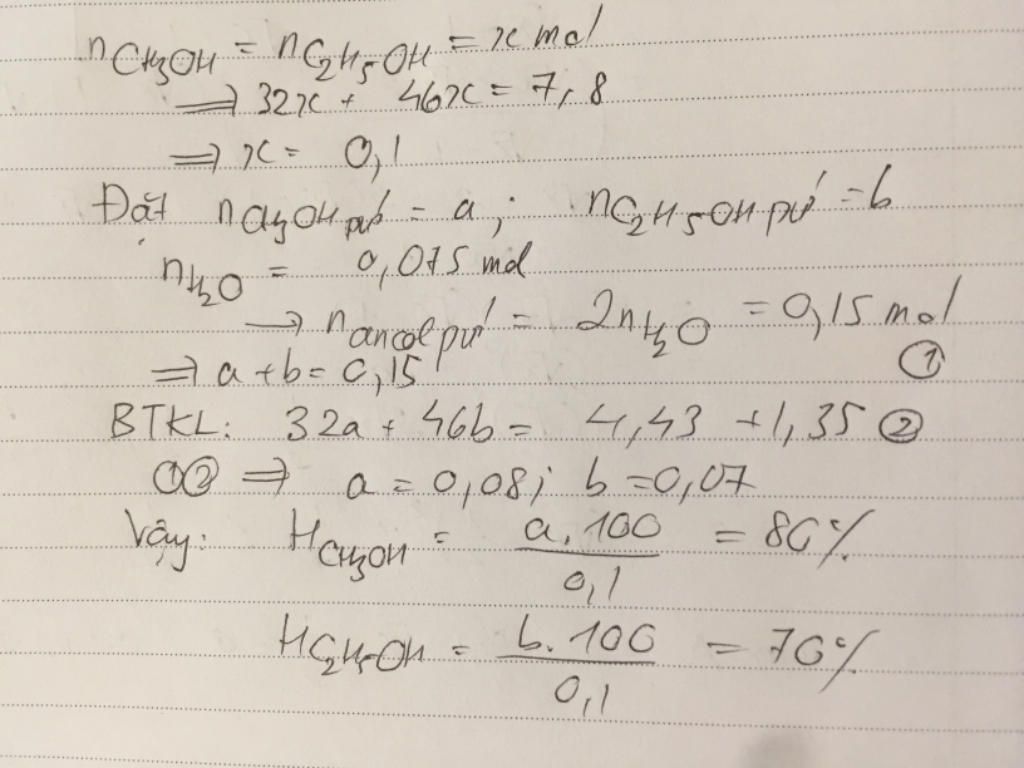 nCH3OH = nC2H5OH = x mol
⟹ 32x + 46x = 7,8
⟹ x = 0,1
Đặt nCH3OH pứ = a; nC2H5OH pứ = b
nH2O = 0,075 mol
→ nancol pứ = 2nH2O = 0,15 mol
①
⟹ a + b = 0,15
BTKL: 32a + 46b = 4,43 + 1,35 ②
①② ⟹ a = 0,08; b = 0,07
Vậy: HCH3OH = a.100 / 0,1 = 80%
HC2H5OH = b.100 / 0,1 = 70%